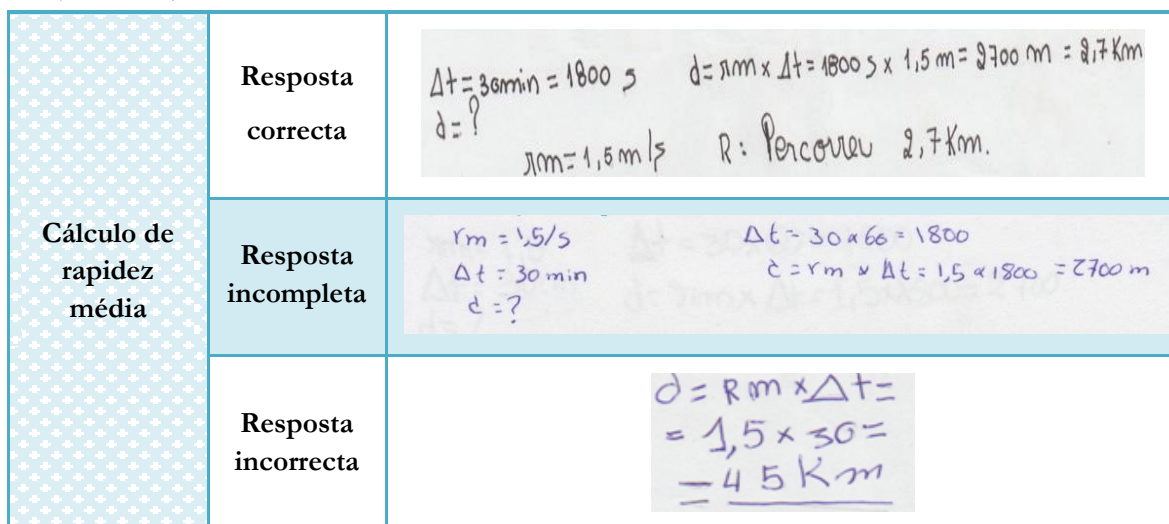 Cálculo de
rapidez
média
Resposta
correcta
Δt = 30min = 1800 s
d = rm x Δt = 1800 s x 1,5 m = 2700 m = 2,7 Km
d = ?
rm = 1,5 m/s
R: Percorreu 2,7 Km.
Resposta
incompleta
rm = 1,5/s
Δt = 30 x 60 = 1800
Δt = 30 min
d = rm x Δt = 1,5 x 1800 = 2700 m
d = ?
Resposta
incorrecta
d = Rm x Δt =
= 1,5 x 30 =
= 45 Km